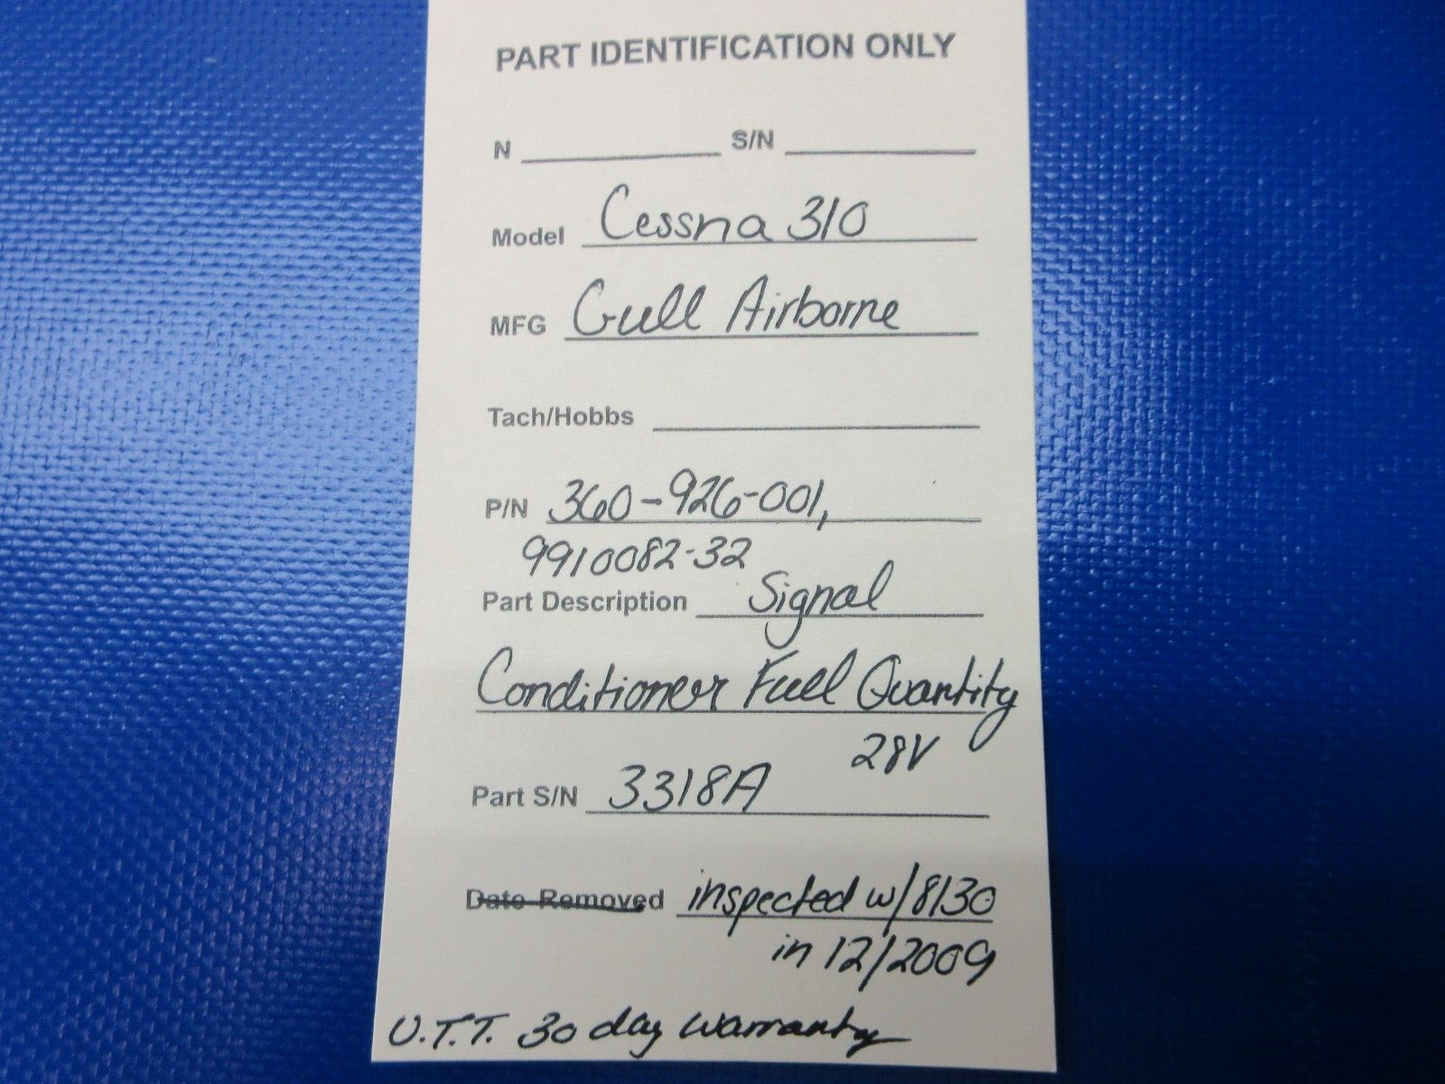 PART IDENTIFICATION ONLY
N S/N
Model Cessna 310
MFG Gull Airborne
Tach/Hobbs
P/N 360-926-001,
9910082-32
Part Description Signal
Conditioner Fuel Quantity
28V
Part S/N 3318A
Date Removed inspected w/8130
in 12/2009
U.T.T. 30 day warranty